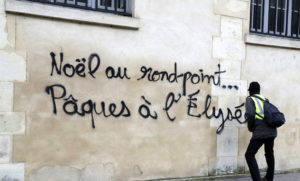 Noël au rond-point...
Pâques à l'Élysée